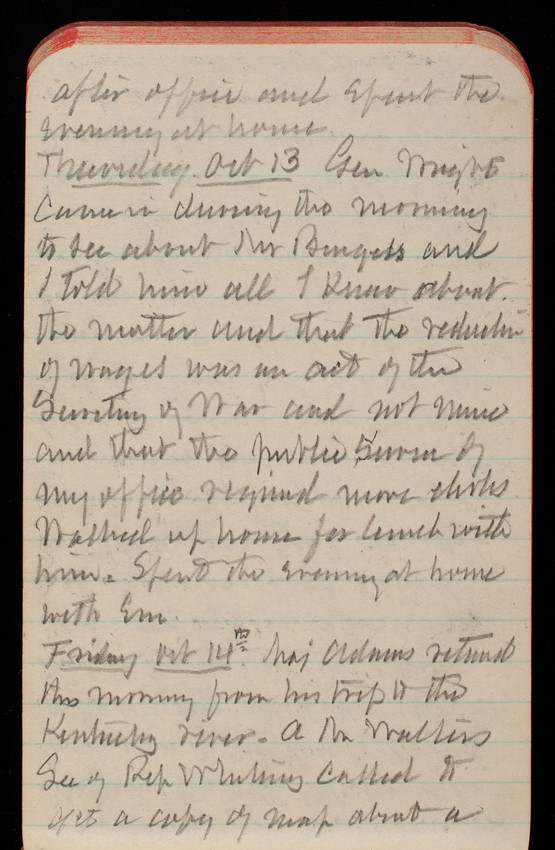 after office and spent the
evening at home.
Thursday Oct 13 Gen Wright
came in during the morning
to see about Mr Burgess and
I told him all I know about
the matter and that the reduction
of wages was an act of the
Secretary of War and not mine
and that the public service of
my office required more clerks
Walked up home for lunch with
him. Spent the evening at home
with Em.
Friday Oct 14th. Maj Adams returned
this morning from his trip to the
Kentucky river. A Mr Walters
Sec of Rep Whiting called to
get a copy of map about a